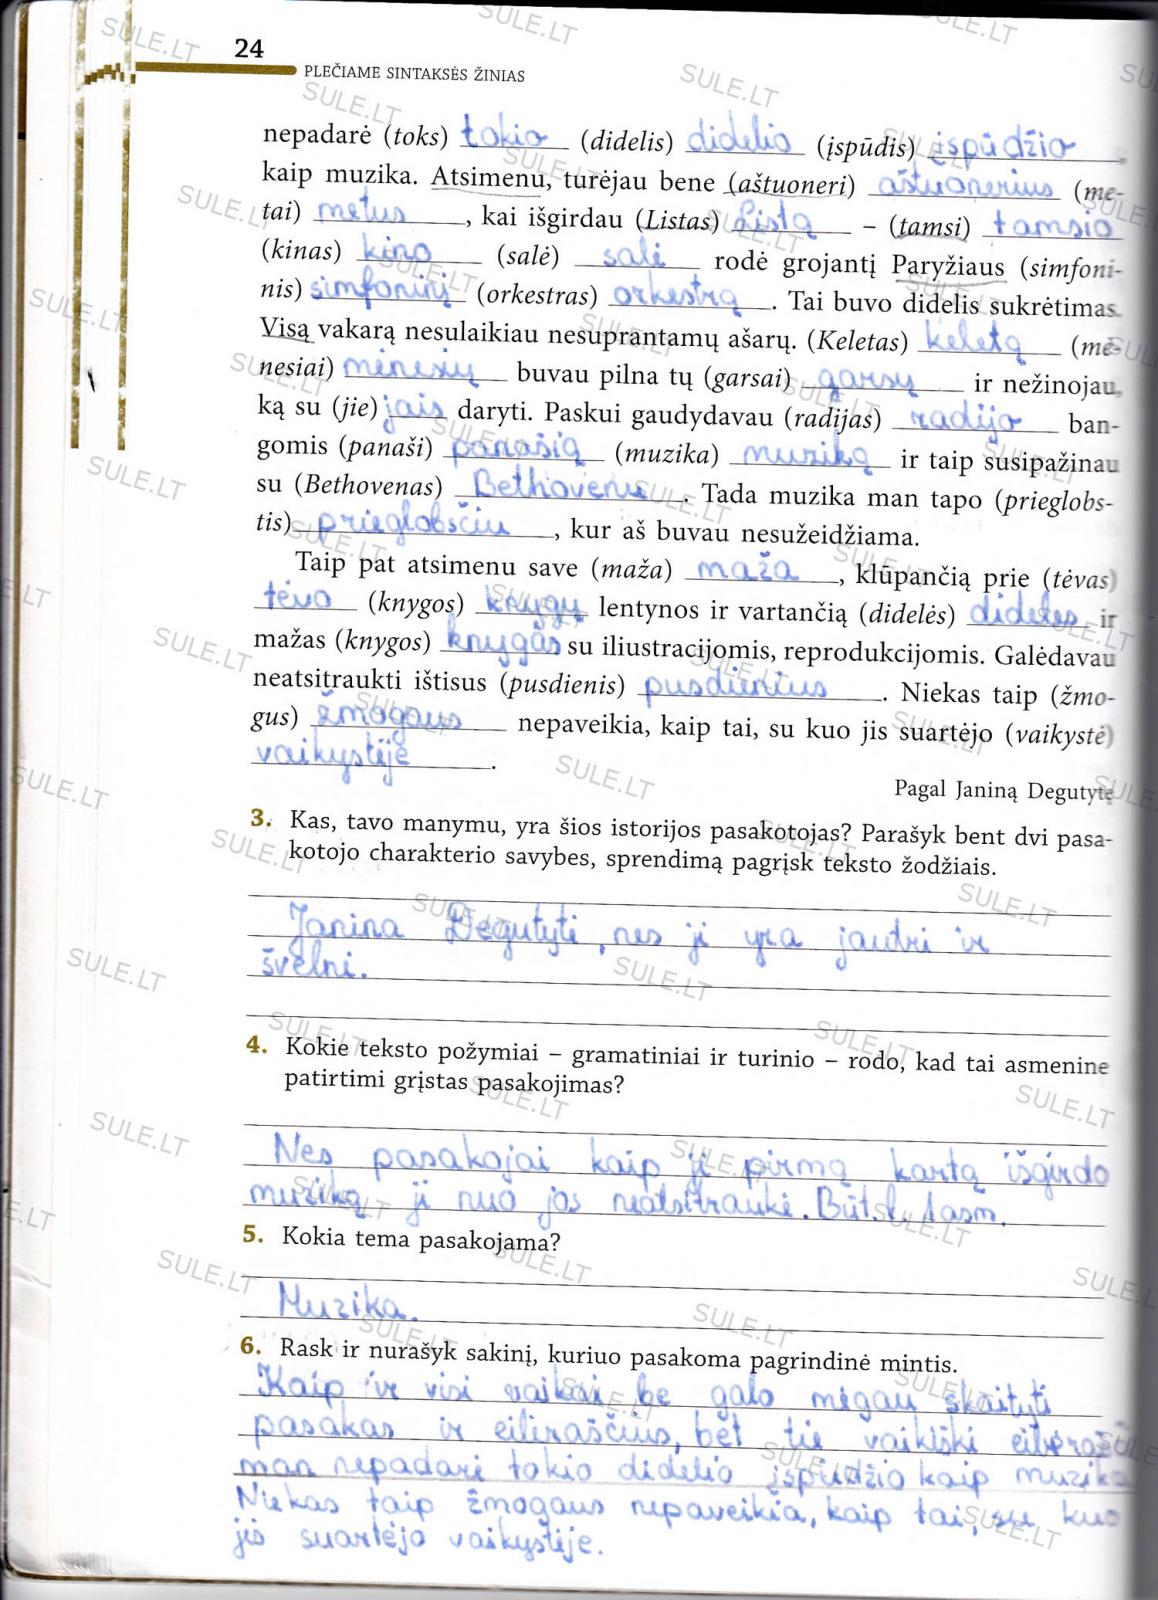 24
PLEČIAME SINTAKSĖS ŽINIAS
nepadarė (toks) tokio (didelis) didelio (įspūdis) įspūdžio
kaip muzika. Atsimenu, turėjau bene (aštuoneri) aštuonerius (me-
tai) metus, kai išgirdau (Listas) Listą – (tamsi) tamsio
(kinas) kino (salė) salė rodė grojantį Paryžiaus (simfoni-
nis) simfoninį (orkestras) orkestrą. Tai buvo didelis sukrėtimas.
Visą vakarą nesulaikiau nesuprantamų ašarų. (Keletas) keletą (mė-
nesiai) mėnesių buvau pilna tų (garsai) garsų ir nežinojau,
ką su (jie) jais daryti. Paskui gaudydavau (radijas) radijo ban-
gomis (panaši) panašią (muzika) muziką ir taip susipažinau
su (Bethovenas) Bethovenu. Tada muzika man tapo (prieglobs-
tis) prieglobsčiu, kur aš buvau nesužeidžiama.
Taip pat atsimenu save (maža) maža, klūpančią prie (tėvas)
tėvo (knygos) knygų lentynos ir vartančią (didelės) dideles ir
mažas (knygos) knygas su iliustracijomis, reprodukcijomis. Galėdavau
neatsitraukti ištisus (pusdienis) pusdienius. Niekas taip (žmo-
gus) žmogaus nepaveikia, kaip tai, su kuo jis suartėjo (vaikystė)
vaikystėje.
Pagal Janiną Degutytę
3. Kas, tavo manymu, yra šios istorijos pasakotojas? Parašyk bent dvi pasa-
kotojo charakterio savybes, sprendimą pagrįsk teksto žodžiais.
Janina Degutytė, nes ji yra jautri ir
švelni.
4. Kokie teksto požymiai – gramatiniai ir turinio – rodo, kad tai asmenine
patirtimi grįstas pasakojimas?
Nes pasakojai kaip ji pirmą kartą išgirdo
muziką ji nuo jos neatsitraukė. Būt.l. 1asm.
5. Kokia tema pasakojama?
Muzika.
6. Rask ir nurašyk sakinį, kuriuo pasakoma pagrindinė mintis.
Kaip ir visi vaikai be galo mėgau skaityti
pasakas ir eilėraščius, bet tie vaikiški
man nepadarė tokio didelio įspūdžio kaip muzika
Niekas taip žmogaus nepaveikia, kaip tai, su kuo
jis suartėjo vaikystėje.
SULE.LT